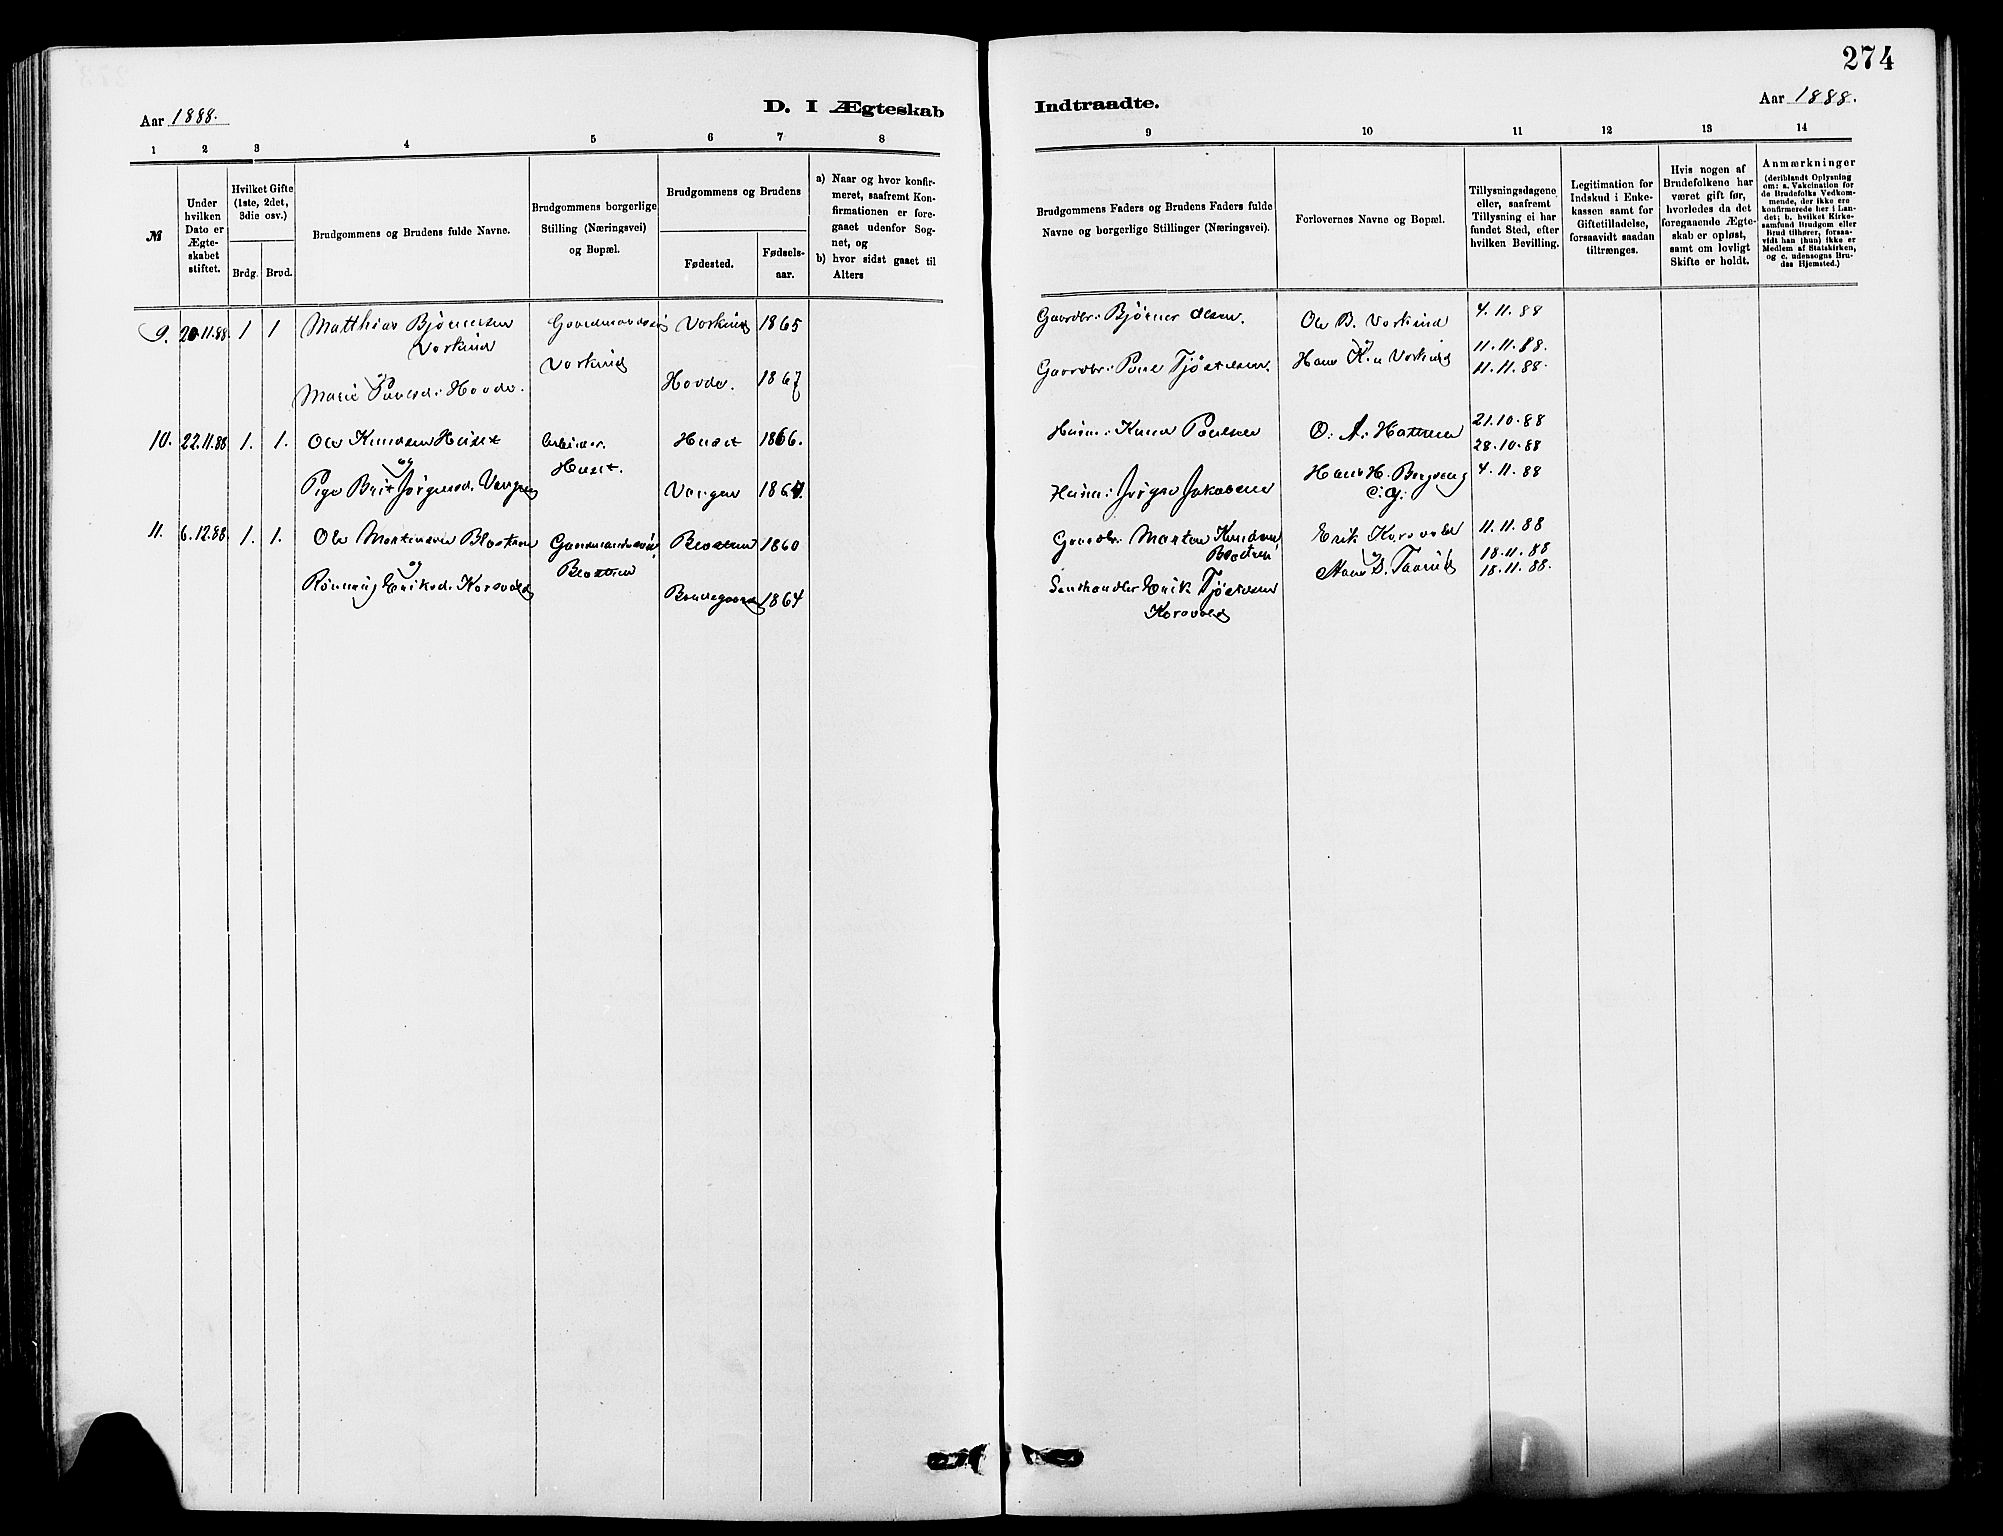 274
Aar 1888.
D. I Ægteskab
Indtraadte.
Aar 1888.
1 2 3 4 5 6 7 8
9 10 11 12 13 14
№
Under hvilken Dato er Ægteskabet stiftet.
Hvilket Gifte (1ste, 2det, 3die osv.)
Brdg. Brud.
Brudgommens og Brudens fulde Navne.
Brudgommens borgerlige Stilling (Næringsvei) og Bopæl.
Brudgommens og Brudens
Fødested.
Fødsels-aar.
a) Naar og hvor konfir-
meret, saafremt Kon-
firmationen er fore-
gaaet udenfor Sog-
net, og
b) hvor sidst gaaet til
Alters
Brudgommens Faders og Brudens Faders fulde
Navne og borgerlige Stillinger (Næringsvei).
Forlovernes Navne og Bopæl.
Tillysningsdagene
eller, saafremt
Tillysning ei har
fundet Sted, efter
hvilken Bevilling.
Legitimation for
Indskud i Enke-
kassen samt for
Giftetilladelse,
forsaavidt saadan
tiltrænges.
Hvis nogen af
Brudefolkene har
været gift før,
hvorledes da det
foregaaende Ægte-
skab er opløst,
samt om lovligt
Skifte er holdt.
Anmærkninger
(deriblandt Oplysning
om: a. Vakcination for
de Brudefolks Vedkom-
mende, der ikke ere
konfirmerede her i Lan-
det; b. hvilket Kirke-
samfund Brudgom eller
Brud tilhører, forsaa-
vidt han (hun) ikke er
Medlem af Statskirken,
og c. udensogns Bru-
des Hjemsted.)
9. 20.11.88 1 1 Matthias Bjørnersen Vorkind 1865
Gaardbr: Bjørner Olsen. Ole B. Vorkind 4.11.88
Vorkind
og
Hans K. Vorkind 11.11.88.
Marie Paulsd: Hovde. Hovde. 1867
Gaardbr: Poul Tjøstelsen. 11.11.88.
10. 22.11.88 1. 1. Ole Knudsen Huset Arbeider Huset 1866.
Husm: Knud Poulsen O: A: Hattrem 21.10.88
Huset.
28.10.88
og
Pige Brit Jørgensd. Vangen Vangen 1867
Husm: Jørgen Jakobsen Hans H. Bergseng 4.11.88
11. 6.12.88 1. 1. Ole Mortensen Blostrem Blostrem 1860
Gaardbr. Morten Knudsen Erik Korsvold 11.11.88
Blostrem
og
18.11.88
Rønnaug Eriksd. Korsvold 1864
Landhandler Erik Tjøstelsen 18.11.88.
Korsvold